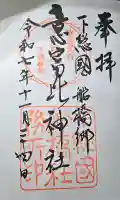 奉拝
下総國 船橋郷
意富比神社
令和七年十一月二十四日